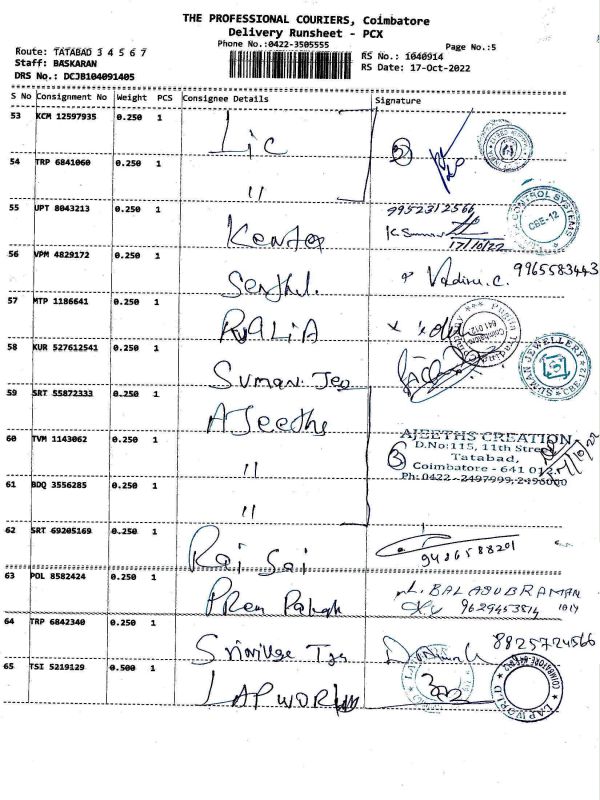 THE PROFESSIONAL COURIERS, Coimbatore
Delivery Runsheet - PCX
Phone No.:0422-3505555
Page No.:5
Route: TATABAD 3 4 5 6 7
RS No.: 1040914
Staff: BASKARAN
RS Date: 17-Oct-2022
DRS No.: DCJB104091405
S No Consignment No Weight PCS Consignee Details Signature
53 KCM 12597935 0.250 1 Lic
54 TRP 6841060 0.250 1 "
55 UPT 8043213 0.250 1 9952312566
17/10/22
CONTROL SYSTEMS
CBE-12
56 VPM 4829172 0.250 1 9965583443
57 MTP 1186641 0.250 1
641 012
58 KUR 527612541 0.250 1 Suman Jew
SUMAN JEWELLERY ★ CBE-12 ★
59 SRT 55872333 0.250 1 AJeeths
60 TVM 1143062 0.250 1 "
AJEETHS CREATION
D.No:115, 11th Street
Tatabad,
Coimbatore - 641 012.
Ph: 0422 - 2497999, 2496000
61 BDQ 3556285 0.250 1 "
62 SRT 69205169 0.250 1 Rai Sai
9486588201
63 POL 8582424 0.250 1 Prem
BALASUBRAMAN
9629453514
64 TRP 6842340 0.250 1
8825724566
65 TSI 5219129 0.500 1 LAPWORLD
LAPWORLD